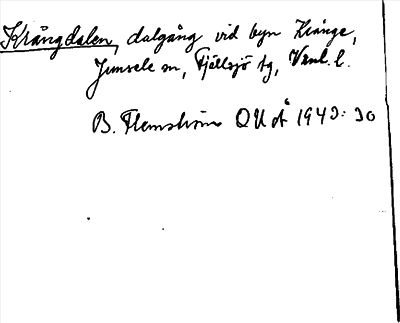 Krångdalen, dalgång vid byn Krånge,
Junsele sn, Fjällsjö tg, Vnl. l.
B. Flemström OUÅ 1943: 30